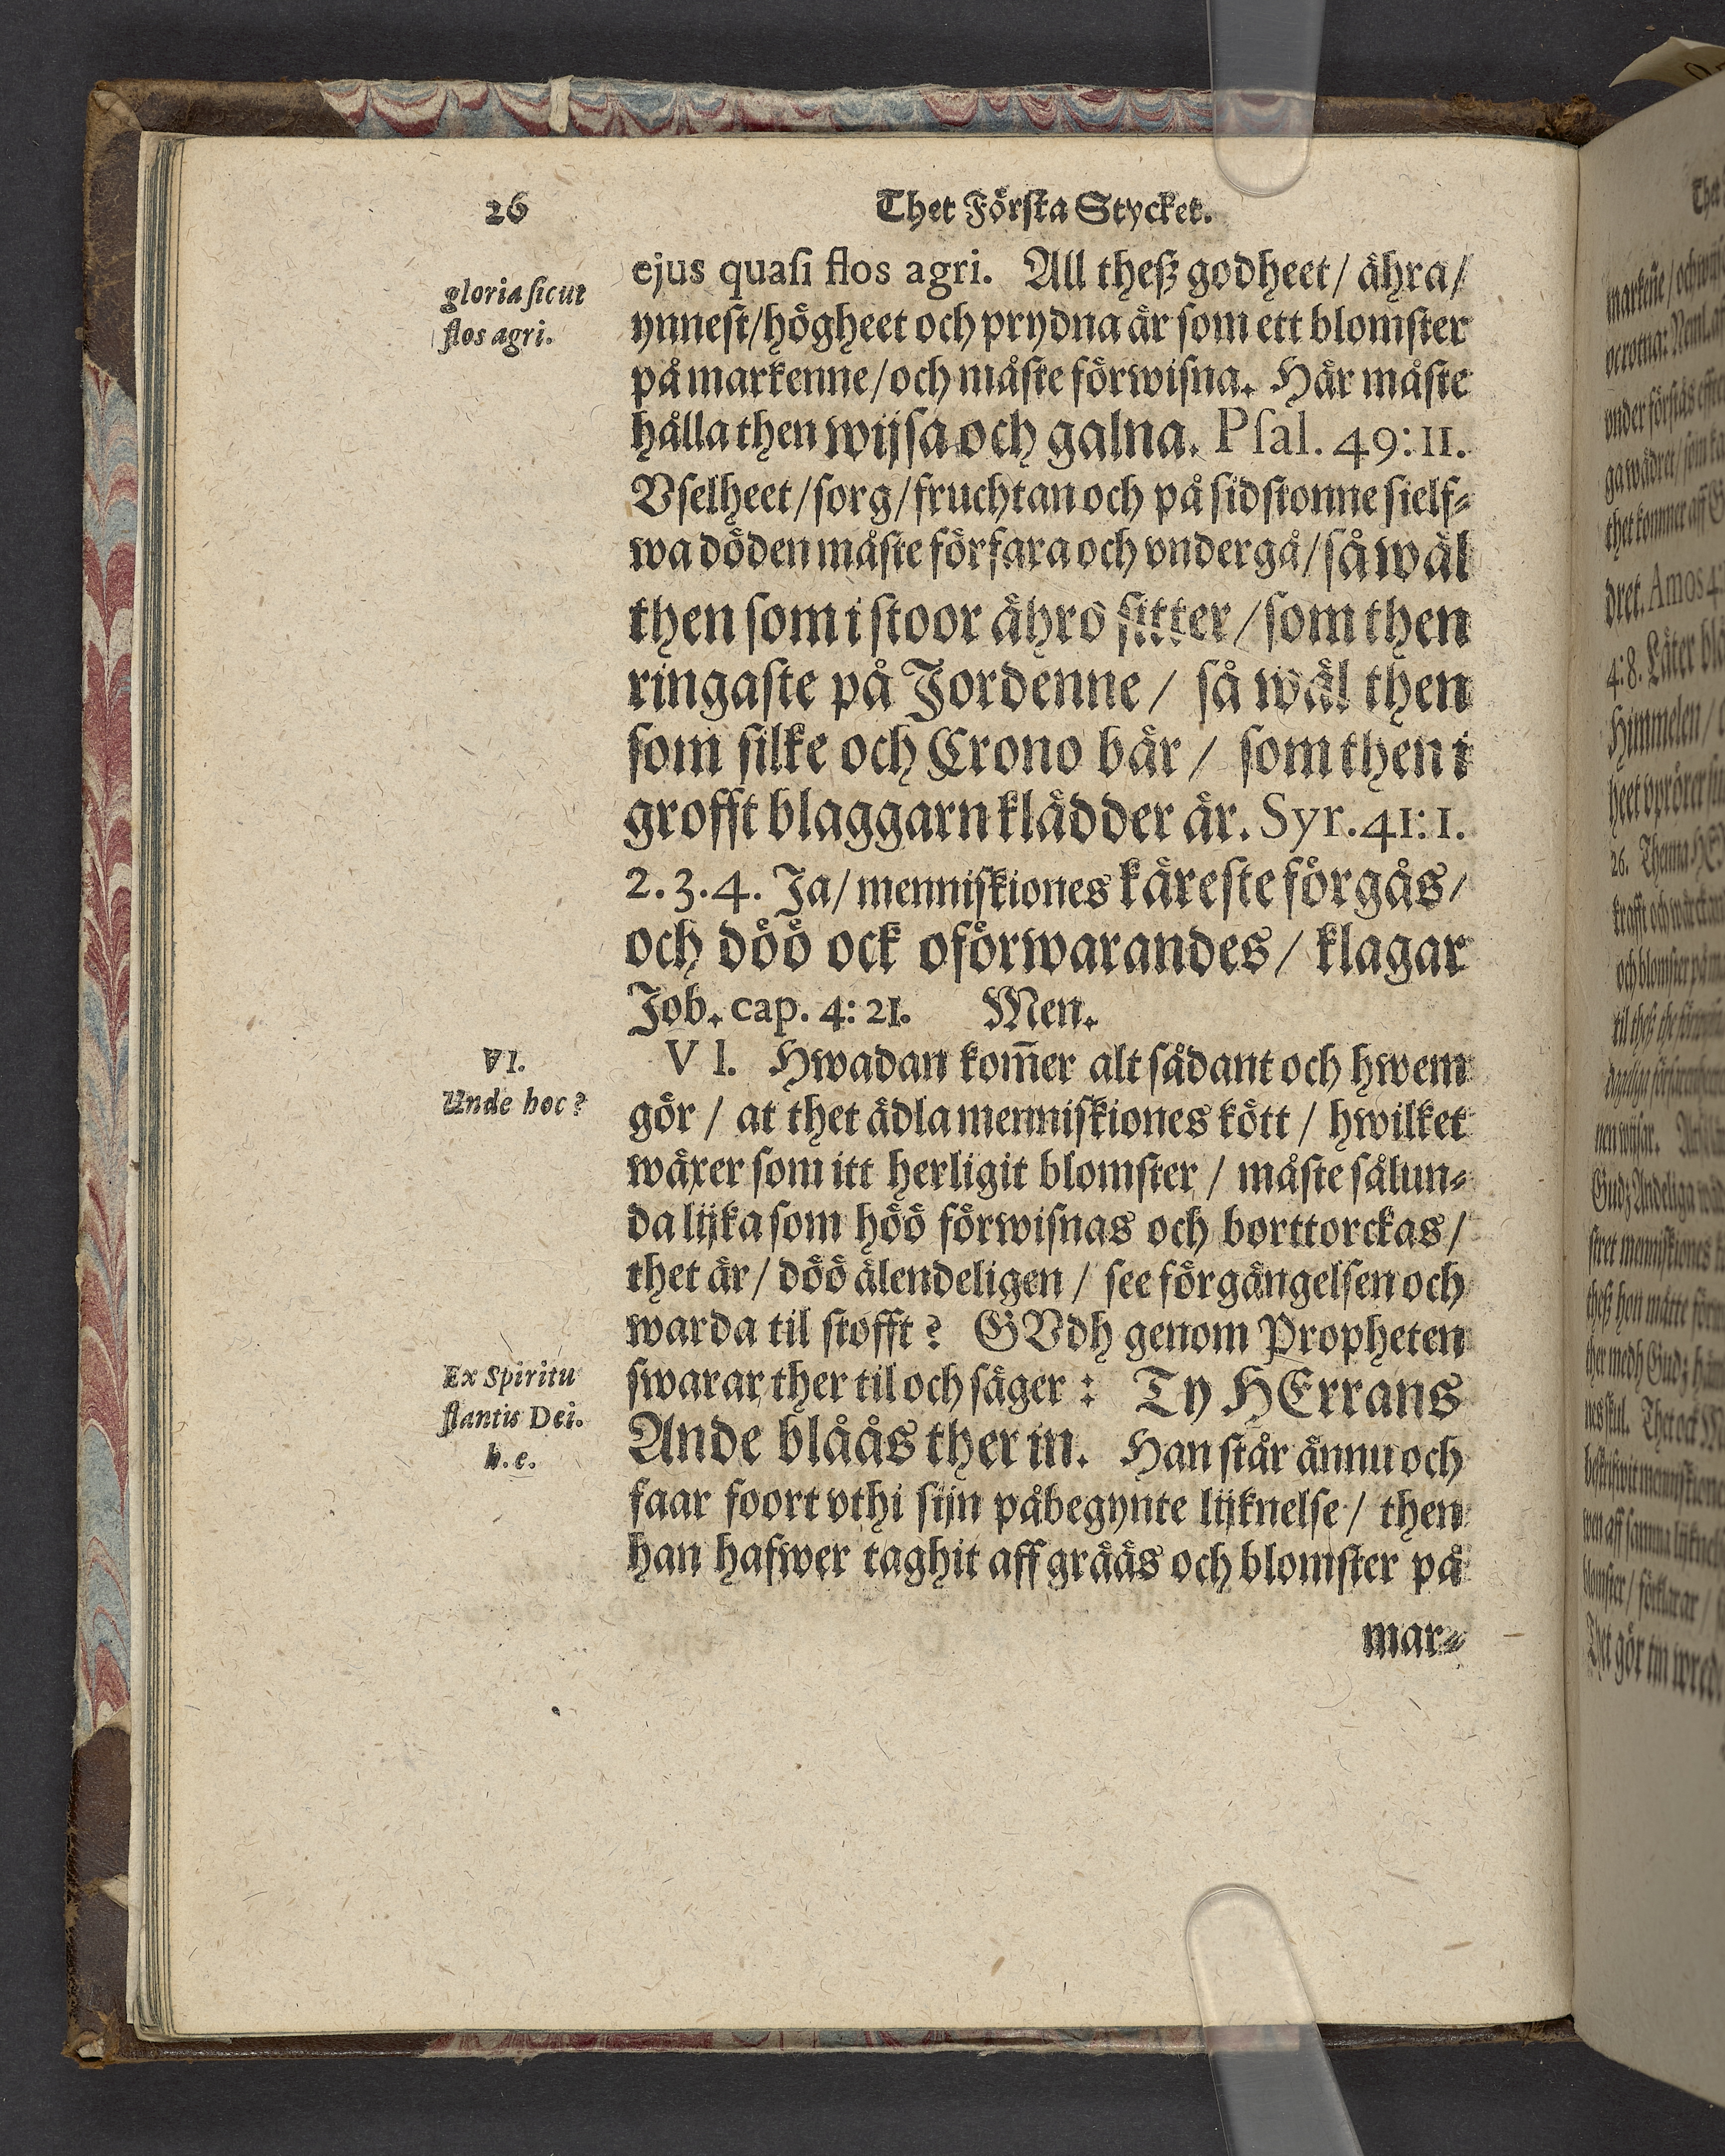 26
Thet Förſta Stycket.
gloria ſicut
flos agri.
ejus quaſi flos agri. All theſz godheet / ähra /
ynneſt / högheet och prydna är ſom ett blomſter
på markenne / och måſte förwiſna. Här måſte
hålla then wijſa och galna. Pſal. 49: 11.
Vſelheet / ſorg / fruchtan och på ſidſtonne ſielf⸗
wa döden måſte förfara och vndergå / ſå wäl
then ſom i ſtoor ähro ſitter / ſom then
ringaſte på Jordenne / ſå wäl then
ſom ſilke och Crono bär / ſom then i
grofft blaggarn klädder är. Syr. 41: 1.
2. 3. 4. Ja / menniſkiones käreſte förgås /
och döö ock oförwarandes / klagar
Job. cap. 4: 21. Men.
VI.
Unde hoc?
VI. Hwadan kom̃er alt ſådant och hwem
gör / at thet ädla menniſkiones kött / hwilket
wäxer ſom itt herligit blomſter / måſte ſålun⸗
da lijka ſom höö förwiſnas och borttorckas /
thet är / döö älendeligen / ſee förgängelſen och
warda til ſtofft? GVdh genom Propheten
Ex Spiritu
flantis Dei.
h. e.
ſwarar ther til och ſäger: Ty HErrans
Ande blåås ther in. Han ſtår ännu och
faar foort vthi ſijn påbegynte lijknelſe / then
han hafwer taghit aff grääs och blomſter på
mar⸗